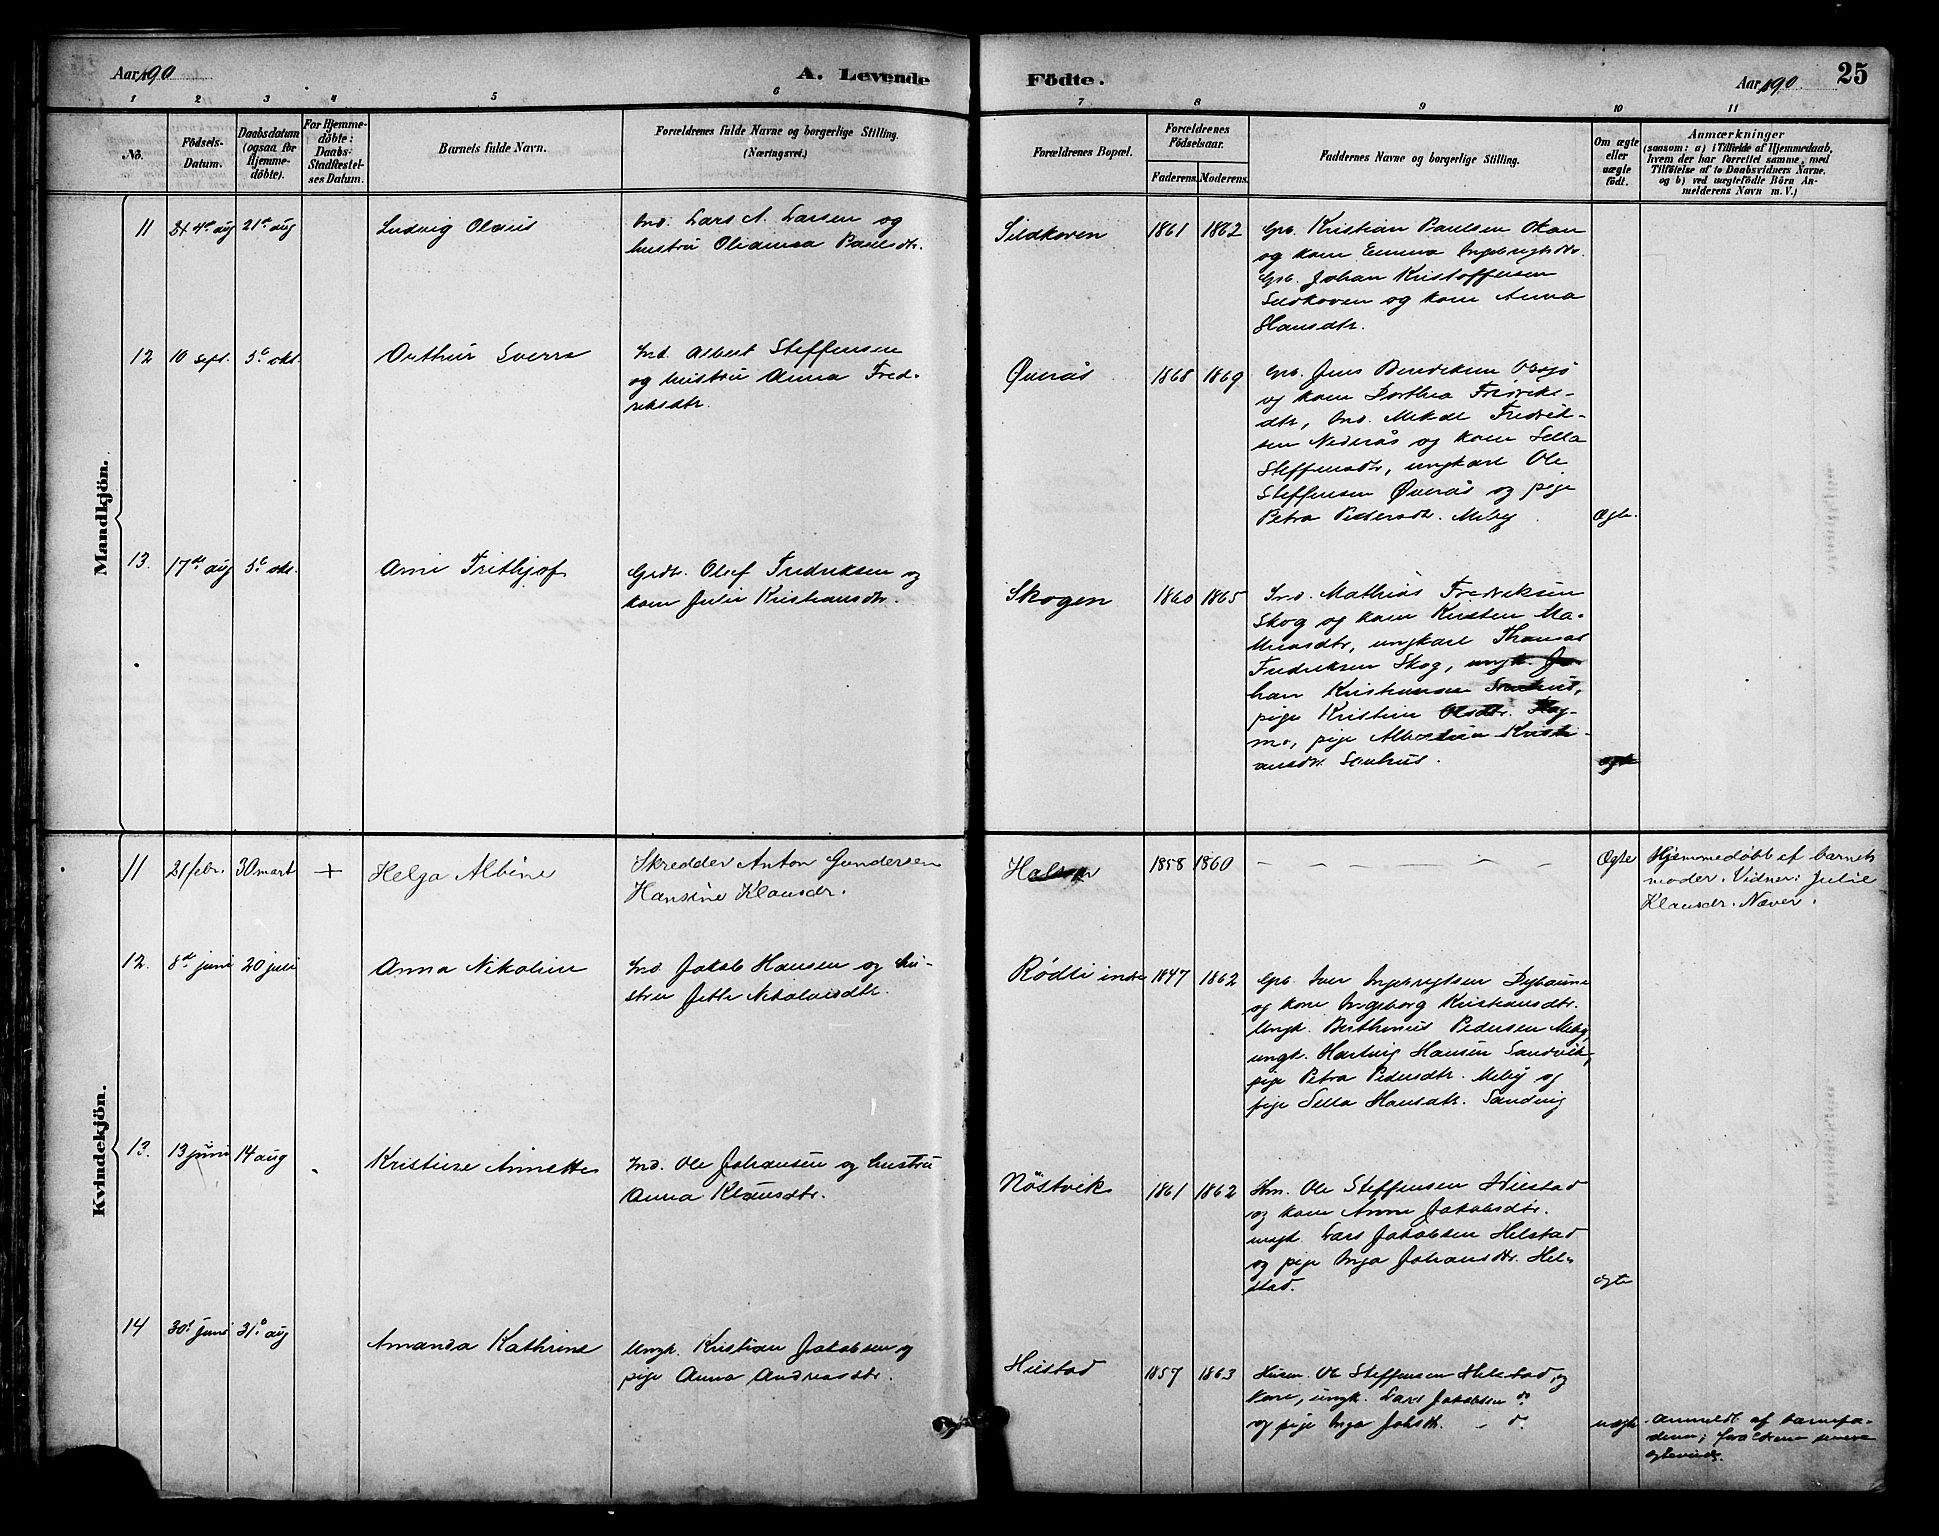 Aar 1890
A. Levende
Födte.
Aar 1890
25
1 2 3 4 5 6 7 8 9 10 11
No.
Födsels-
Datum.
Daabsdatum
(ogsaa for
Hjemme-
döbte).
For Hjemme-
döbte:
Daabs-
Stadfæstel-
ses Datum.
Barnets fulde Navn.
Forældrenes fulde Navne og borgerlige Stilling.
(Næringsvei.)
Forældrenes Bopæl.
Forældrenes
Födselsaar.
Faderens. Moderens.
Faddernes Navne og borgerlige Stilling.
Om ægte
eller
uægte
födt.
Anmærkninger
(saasom: a) i Tilfælde af Hjemmedaab,
hvem der har forrettet samme, med
Tilföielse af to Daabsvidners Navne,
og b) ved uægtefödte Börn An-
melderens Navn m. V.)
Mandkjön.
11
4de aug
21de aug
Ludvig Olaus
Ind. Lars A. Larsen og
hustru Olianna Paulsdtr.
Sildhoven
1861
1862
Grb. Kristian Paulsen
og kone Emma Ingebrigtsdtr.
Grb. Johan Kristoffersen
Sildhoven og kone Anna
Hansdtr.
12
10 sept.
5te okt.
Arthur Sverre
Ind. Albert Steffensen
og hustru Anna Fred-
riksdtr.
Øverås
1868
1869
Grb. Jens Benediksen
og kone Dorthea Fredriks-
dtr, Ind. Mikal Fredrik-
sen Nederås og kone Sella
Steffensdtr, ungkarl Ole
Steffensen Øverås og pige
Petra Pedersdtr. Meby.
Ægte.
13.
17de aug
5te okt.
Arne Frithjof
Grdb. Olef Fredriksen og
kone Julie Kristiansdtr.
Skogen
1860
1865
Ind. Mathias Fredriksen
Skog og kone Kirsten Ma-
thiasdtr, ungkarl Thomas
Fredriksen Skog, ungk. Jo-
han Kristiansen
pige Kristine Olsdtr.
mo, pige Albertine Kristi-
ansdtr.
ægte
Kvindekjön.
11
21 febr.
30 mart
+
Helga Albine
Skredder Anton Gundersen
Hansine Klausdr.
1858
1860
Ægte
Hjemmedøbt af barnets
moder. Vidner: Julie
Klausdr. Næver.
12.
8de juni
20 juli
Anna Nikoline
Ind. Jakob Hansen og hu-
stru Jette Nikolaisdtr.
Rødli indre
1847
1862
Grb. Iver Ingebrigtsen
og kone Ingeborg Kristiansdtr.
Ungk. Berthinius Pedersen Meby,
ungk. Hartvig Hansen Sandvik,
pige Petra Pedersdtr. Meby og
pige Sella Hansdtr. Sandvig
13.
13 juni
14 aug
Kristine Annette
Ind. Ole Johansen og hustru
Anna Klausdtr.
Nöstvik
1861
1862
Hm. Ole Steffensen Hilstad
og kone Anne Jakobsdtr.
ungk. Lars Jakobsen Hilstad
og pige Inga Johansdtr. Hil-
stad.
ægte
14
30te juni
31te aug
Amanda Kathrine
Ungk. Kristian Jakobsen og
pige Anna Andreasdtr.
Hilstad
1857
1863
Husm. Ole Steffensen Hilstad og
kone, ungk. Lars Jakobsen do
og pige Inga Johsdtr. – do
uægte
Anmeldt af barnefa-
deren; forældrene senere
ægteviede.